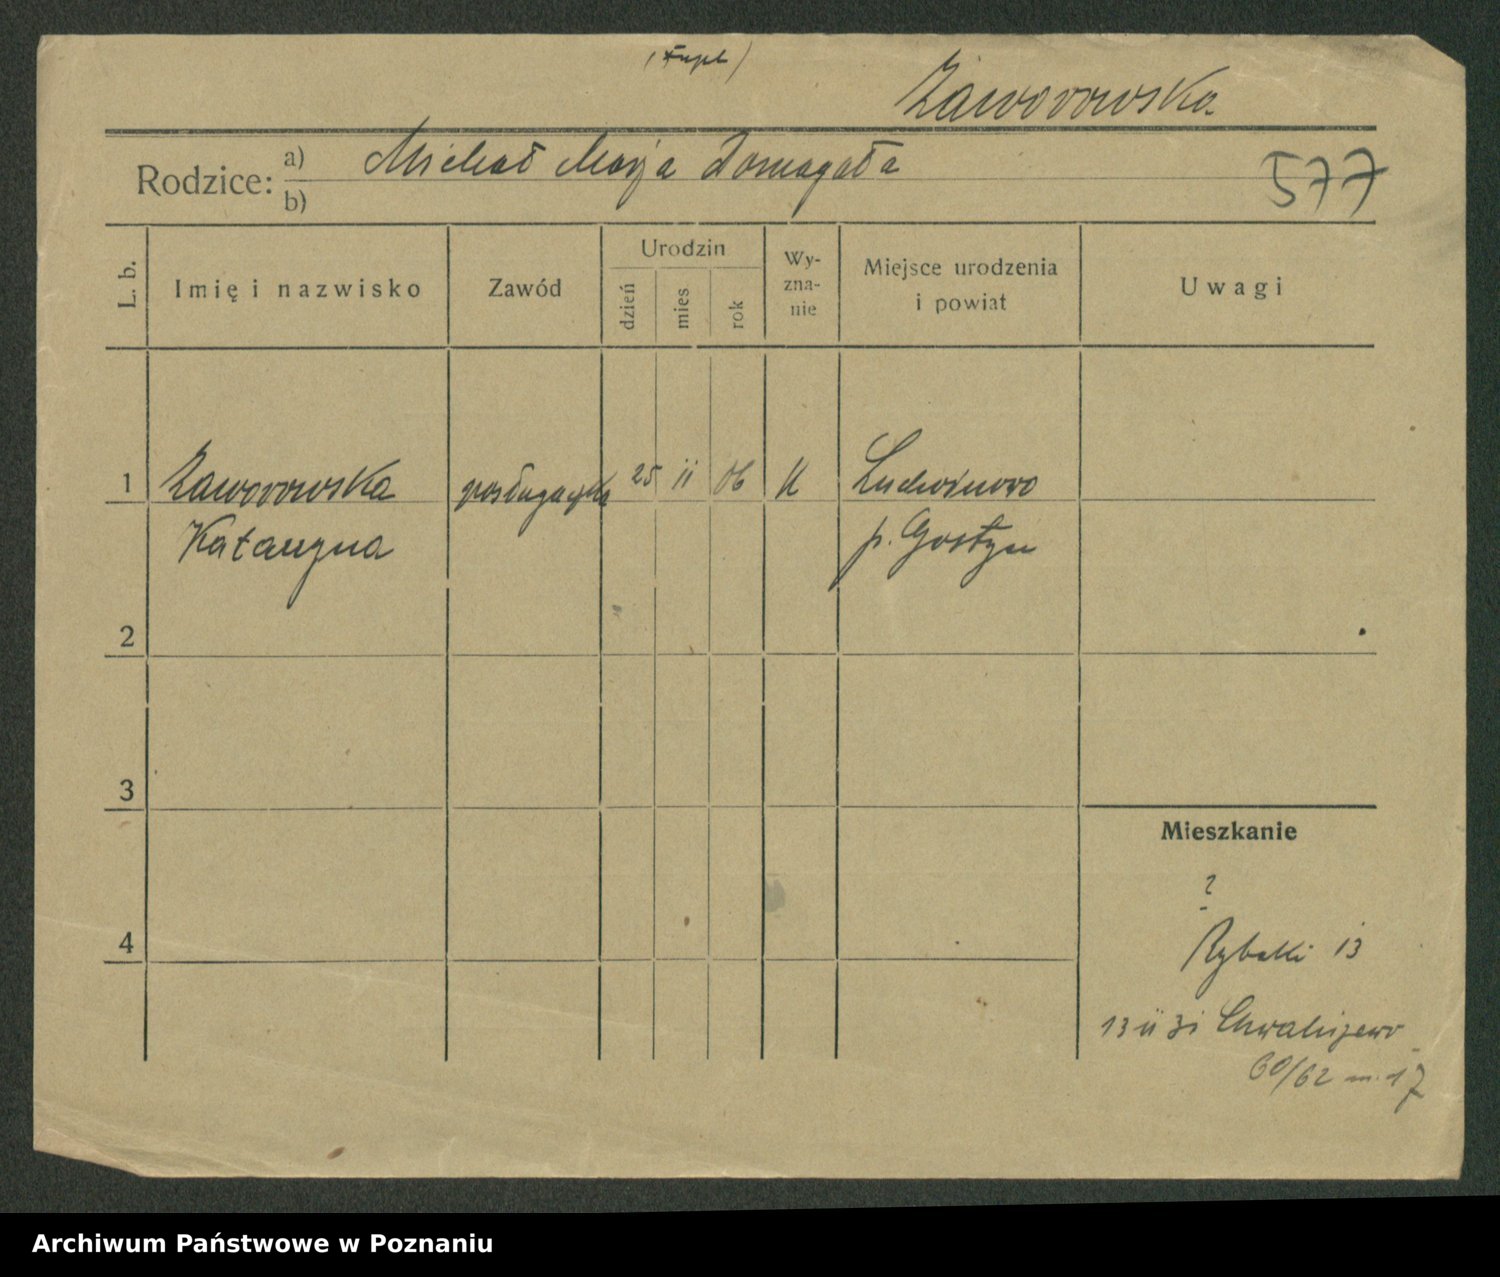 Zaworowska
Rodzice: a) Michał Marja Domagała
b)
577
L. b.
Imię i nazwisko
Zawód
Urodzin
dzień
mies
rok
Wy-
zna-
nie
Miejsce urodzenia
i powiat
Uwagi
1 Zaworowska posługaczka 25 ii 06 K Ludwinowo
Katarzyna p. Gostyń
2
3
4
Mieszkanie
?
Rybaki 13
13 ii 31 Chwaliszewo
60/62 m. 17
Archiwum Państwowe w Poznaniu